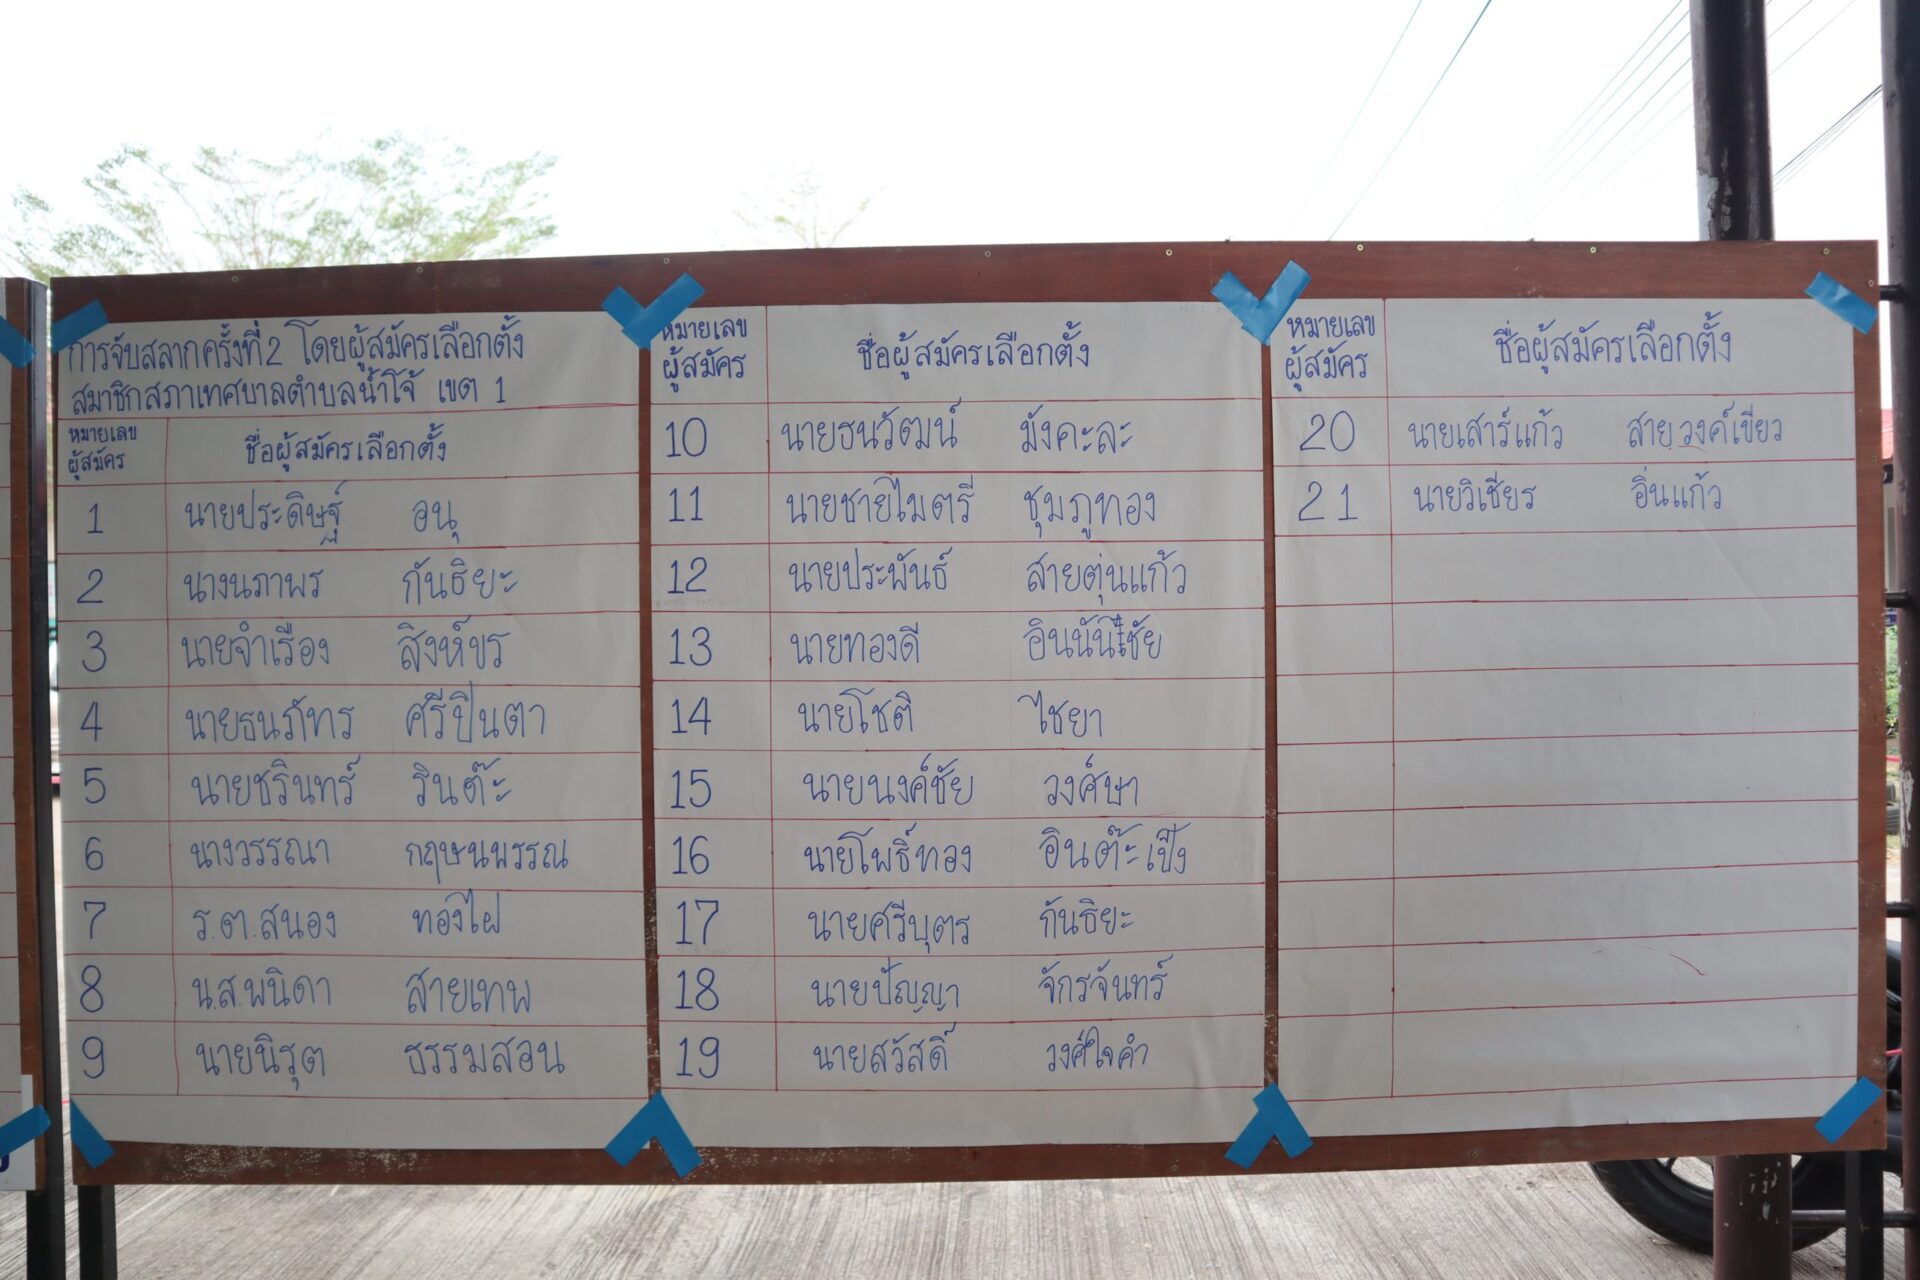 การจับสลากครั้งที่2 โดยผู้สมัครเลือกตั้ง
สมาชิกสภาเทศบาลตำบลน้ำโจ้ เขต 1
หมายเลขผู้สมัคร ชื่อผู้สมัครเลือกตั้ง
1 นายประดิษฐ์ อนุ
2 นางนภาพร กันธิยะ
3 นายจำเรือง สิงห์ขร
4 นายธนภัทร ศรีปินตา
5 นายชรินทร์ รินต๊ะ
6 นางวรรณา กฤษนพรรณ
7 ร.ต.สนอง ทองไฝ
8 น.ส.พนิดา สายเทพ
9 นายนิรุต ธรรมสอน
หมายเลขผู้สมัคร ชื่อผู้สมัครเลือกตั้ง
10 นายธนวัฒน์ มังคะละ
11 นายชายไมตรี ชุมภูทอง
12 นายประพันธ์ สายตุ่นแก้ว
13 นายทองดี อินนันชัย
14 นายโชติ ไชยา
15 นายนงค์ชัย วงศ์ษา
16 นายโพธิ์ทอง อินต๊ะเป็ง
17 นายศรีบุตร กันธิยะ
18 นายปัญญา จักรจันทร์
19 นายสวัสดิ์ วงศ์ใจคำ
หมายเลขผู้สมัคร ชื่อผู้สมัครเลือกตั้ง
20 นายเสาร์แก้ว สายวงค์เขียว
21 นายวิเชียร อิ่นแก้ว